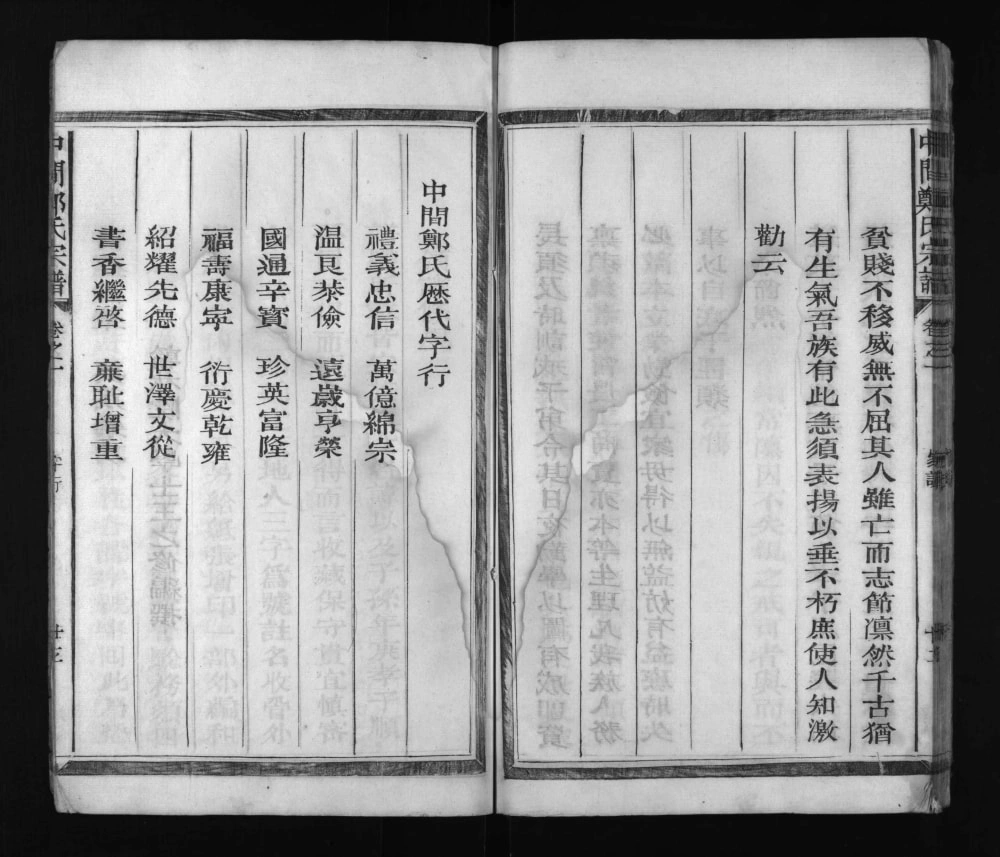 中間鄭氏宗譜 卷之一 家訓
貧賤不移威無不屈其人雖亡而志節凛然千古猶
有生氣吾族有此急須表揚以垂不朽庶使人知激
勸云
中間鄭氏歷代字行
禮義忠信 萬億綿宗
温良恭儉 遠歲亨榮
國通辛賓 珍英富隆
福壽康寧 衍慶乾雍
紹耀先德 世澤文從
書香繼啓 廉耻增重
中間鄭氏宗譜 卷之一 字行 廿三